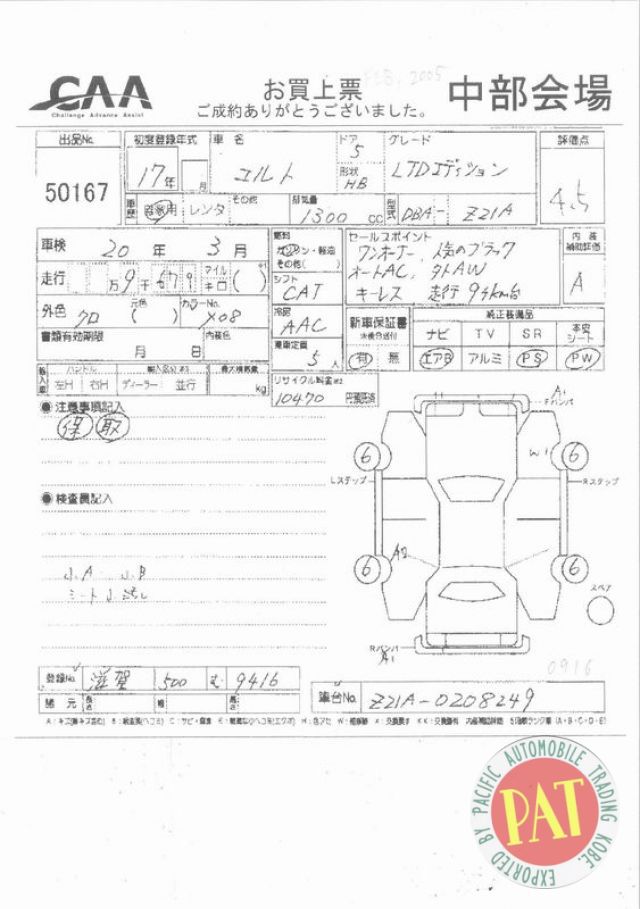 FEB. 2005
CAA
Challenge Advance Assist
お買上票
ご成約ありがとうございました。
中部会場
出品No.
50167
初度登録年式
17年 月
車名
コルト
ドア
5
形状
HB
グレード
LTDエディション
評価点
4.5
車歴
自家用
レンタ
その他
排気量
1300 CC
型式
DBA- Z21A
車検
20 年 3 月
走行
万9千679
マイル
キロ
外色
クロ
元色
( )
カラーNo.
X08
書類有効期限
月 日
内装色
燃料
ガソリン・軽油
その他( )
シフト
CAT
冷房
AAC
乗車定員
5人
セールスポイント
ワンオーナー、人気のブラック
オートAC、外AW
キーレス 走行 9千km台
内装
補助評価
A
新車保証書
有 無
純正装備品
ナビ TV SR 本皮シート
エアB アルミ PS PW
輸入車
ハンドル
左H 右H
ディーラー 並行
最大積載量
kg
リサイクル料金
10470
● 注意事項記入
保 取
● 検査員記入
小A 小B
シート小汚し
A1
Fバンパ
W1
6
6
Lステップ
Rステップ
A2
6
6
スペア
Rバンパ
A1
0916
登録No.
滋賀 500 む 9416
諸元
長さ
幅
高さ
車台No.
Z21A-0208249
PACIFIC AUTOMOBILE TRADING KOBE.
PAT
EXPORTED BY